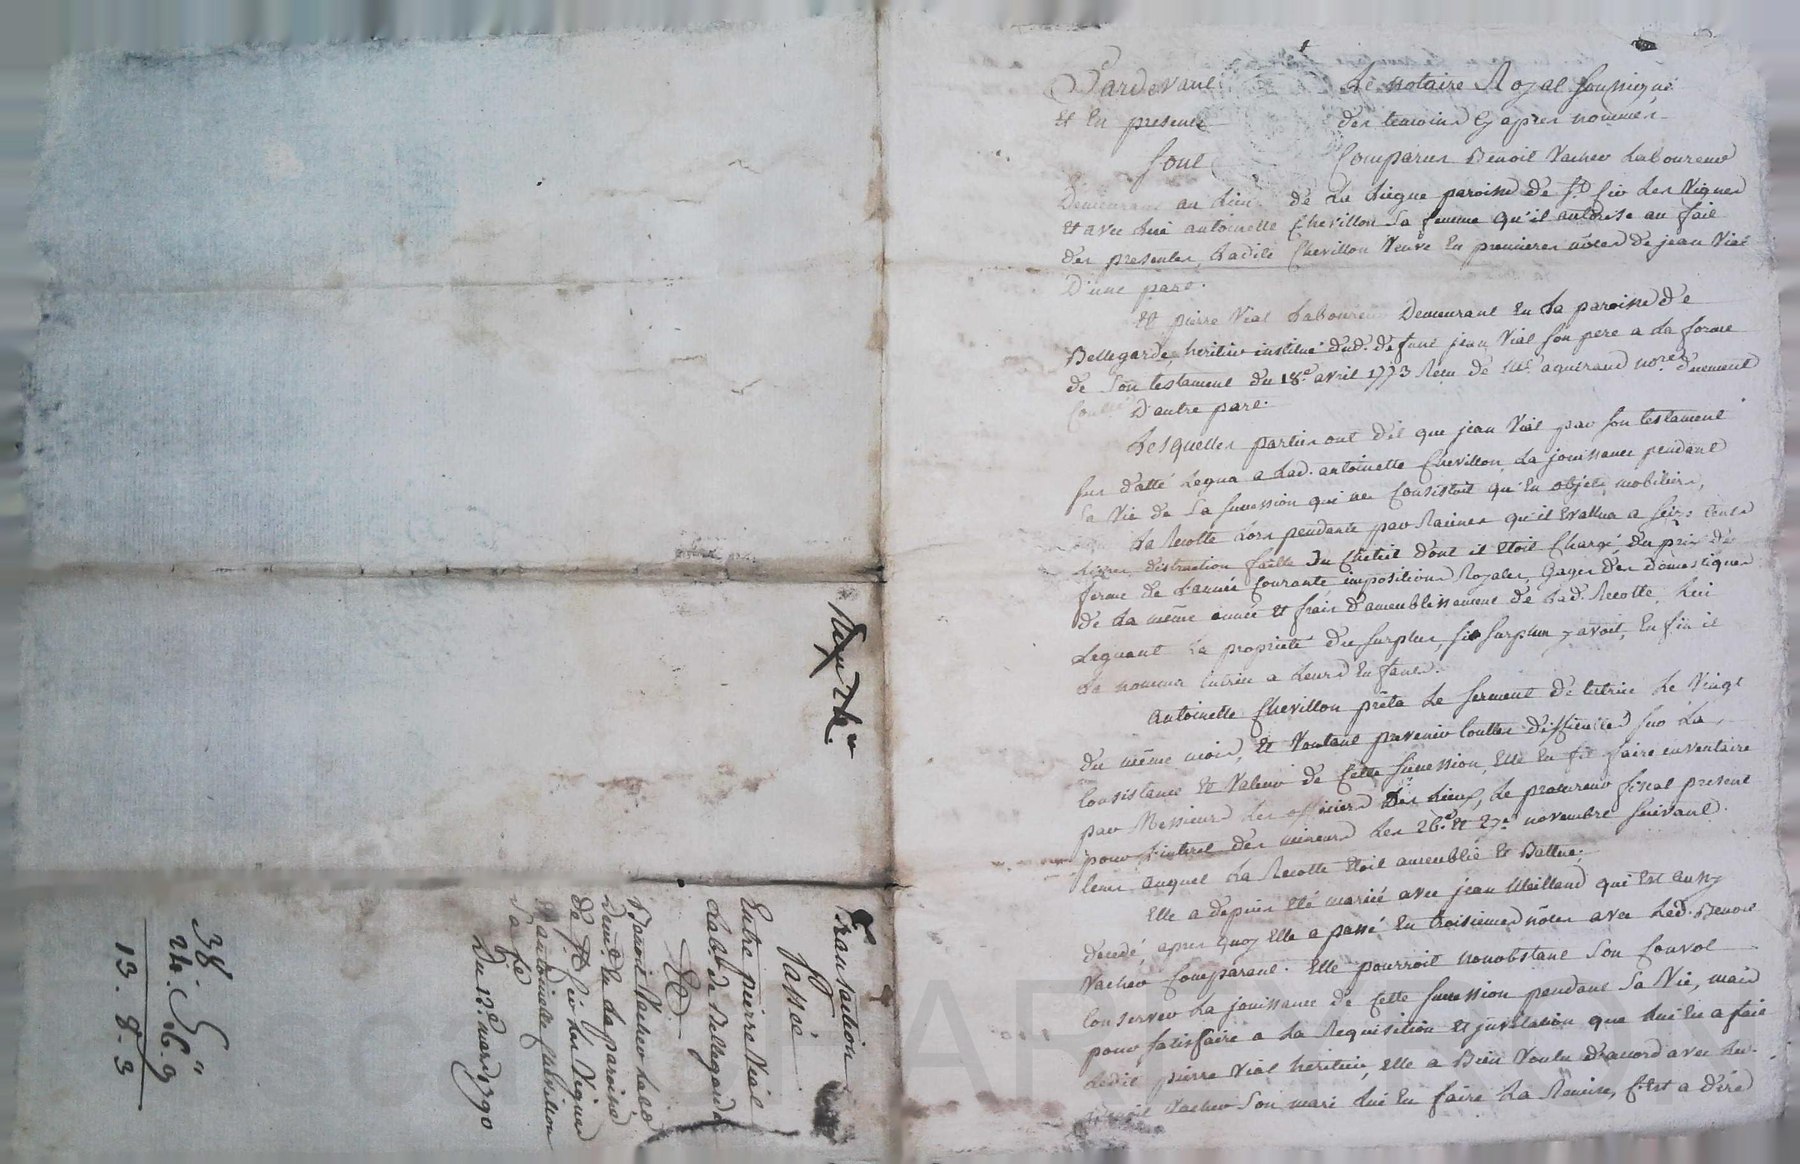 Pardevant Le notaire Royal soussigné
et En presence des temoins Cy apres nommés
sont Comparus Benoit Vacher Laboureur
Demeurant au Lieu de La Liegue paroisse de St Cir Les Vignes
et avec Lui antoinette Chevillon Sa femme qu'il autorise au fait
des presentes, Ladite Chevillon Veuve En premieres nôces de jean Vial
D'une part.
Et pierre Vial Laboureur Demeurant En La paroisse de
Bellegarde, heritier institué dud. defunt jean Vial son pere a La forme
de Son testament du 18e avril 1773 Recu de Me aguiraud nore. duement
Controllé D'autre part.
Lesquelles parties ont dit que jean Vial par son testament
sus datté Legua a Lad. antoinette Chevillon La jouissance pendant
Sa Vie de Sa succession qui ne Consistoit qu'En objets mobiliers,
La Recotte Lors pendante par Racines qu'il Evallua a seize Cents
Livres, distraction faitte Du Cheteil dont il Etoit Chargé, du prix de
ferme de L'année Courante impositions Royales, Gages des domestiques
de La même année et frais d'ameublissement de Lad. Recotte, Lui
Leguant La proprieté du surplus, si surplus y avoit, Enfin il
La nomma tutrice a Leurs Enfants.
Antoinette Chevillon prêta Le serment de tutrice Le Vingt
du même mois, Et Voulant prevenir touttes difficultés sur La
Consistance et Valeur de Cette succession, Elle En fit faire inventaire
par Messieurs Les officiers Des Lieux, Le procureur fiscal present
pour L'interet des mineurs Les 26e et 27e novembre suivant.
tems auquel La Recotte Etoit ameublie Et Battue;
Elle a depuis Eté mariée avec jean Meilland qui Est aussy
decedé, apres quoy Elle a passé En troisiemes nôces avec Led. Benoit
Vacher Comparant. Elle pourroit nonobstant Son Convol
Conserver La jouissance de Cette succession pendant Sa Vie, mais
pour satisfaire a La Requisition Et jusques que Lui En a fait
Ledit pierre Vial heritier, Elle a Bien Voulu d'accord avec Led.
Benoit Vacher Son mari Lui En faire La Remise, C'Est a dire
Transaction
Passée
Entre pierre Vial
Lab. de Bellegarde
Et
Benoit Vacher Labo.
Demt. En La paroisse
de St Cir Les Vignes
antoinette Chevillon
Sa fe
Du 13e mars 1790
38
24. 16. 9
13. 8. 3